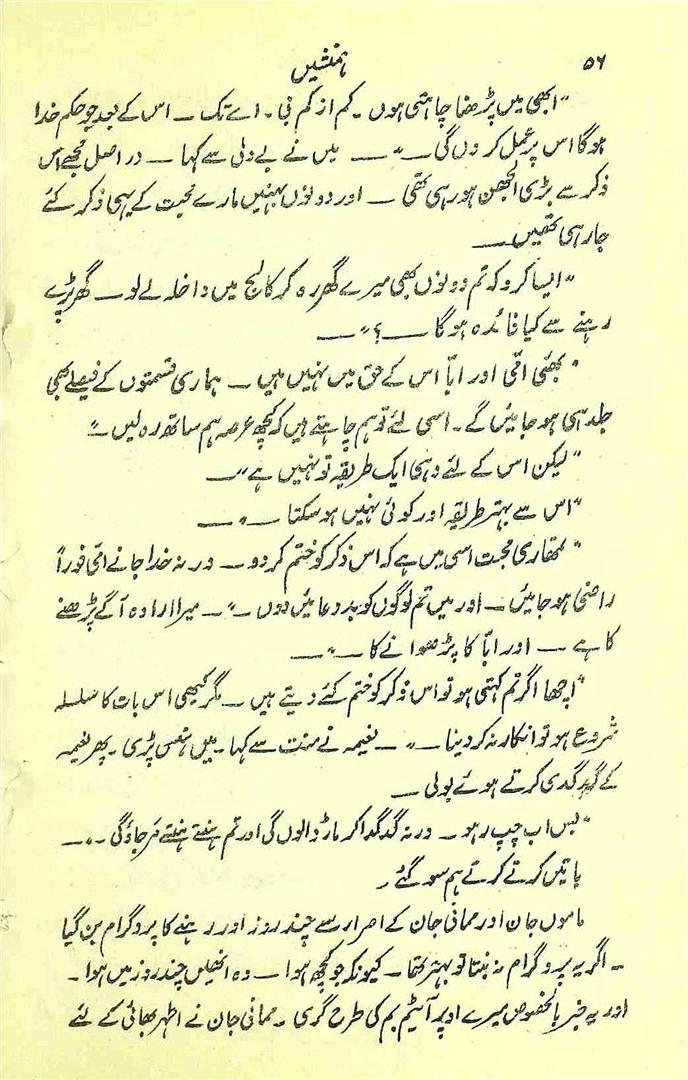 ۵۶
ہمنشیں
"ابھی میں پڑھنا چاہتی ہوں۔ کم از کم بی۔ اے تک ـــ اس کے بعد جو حکم خدا
ہوگا اس پر عمل کروں گی ـــ" ـــ میں نے بے دلی سے کہا ـــ دراصل مجھے اس
ذکر سے بڑی الجھن ہو رہی تھی ـــ اور دونوں بہنیں مارے محبت کے یہی ذکر کئے
جا رہی تھیں ـــ
"ایسا کرو کہ تم دونوں بھی میرے گھر رہ کر کالج میں داخلہ لے لو ـــ گھر پڑے
رہنے سے کیا فائدہ ہوگا ـــ؟" ـــ
"بھئی امّی اور ابّا اس کے حق میں نہیں ہیں ـــ ہماری قسمتوں کے فیصلے بھی
جلد ہی ہو جائیں گے۔ اسی لئے تو ہم چاہتے ہیں کہ کچھ عرصہ ہم ساتھ رہ لیں ـــ"
"لیکن اس کے لئے وہی ایک طریقہ تو نہیں ہے" ـــ
"اس سے بہتر طریقہ اور کوئی نہیں ہو سکتا ـــ" ـــ
"تمھاری محبت اسی میں ہے کہ اس ذکر کو ختم کر دو ـــ ورنہ خدا جانے امّی فوراً
راضی ہو جائیں ـــ اور میں تم لوگوں کو بددعائیں دوں ـــ" ـــ میرا ارادہ آگے پڑھنے
کا ہے ـــ اور ابّا کا پڑھوانے کا ـــ" ـــ
"اچھا اگر تم کہتی ہو تو اس ذکر کو ختم کئے دیتے ہیں ـــ مگر کبھی اس بات کا سلسلہ
شروع ہو تو انکار نہ کر دینا ـــ" ـــ نعیمہ نے منت سے کہا۔ میں ہنس پڑی۔ پھر نعیمہ
کے گدگدی کرتے ہوئے بولی ـــ
"بس اب چپ رہو ـــ ورنہ گدگدا کر مار ڈالوں گی اور تم ہنستے ہنستے مر جاؤ گی ـــ" ـــ
باتیں کرتے کرتے ہم سو گئے۔
ماموں جان اور ممانی جان کے اصرار سے چند روز اور رہنے کا پروگرام بن گیا
ـــ اگر یہ پروگرام نہ بنتا تو بہتر تھا ـــ کیونکہ جو کچھ ہوا ـــ وہ انھیں چند روز میں ہوا۔
اور یہ خبر بالخصوص میرے اوپر آیٹم بم کی طرح گری۔ ممانی جان نے اطہر بھائی کے لئے